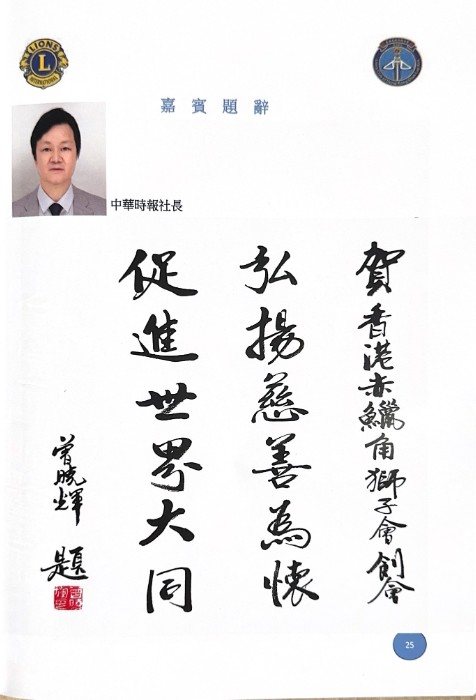 LIONS
L
INTERNATIONAL
嘉賓題辭
中華時報社長
賀香港赤鱲角獅子會創會
弘揚慈善為懷
促進世界大同
曾曉輝 題
25